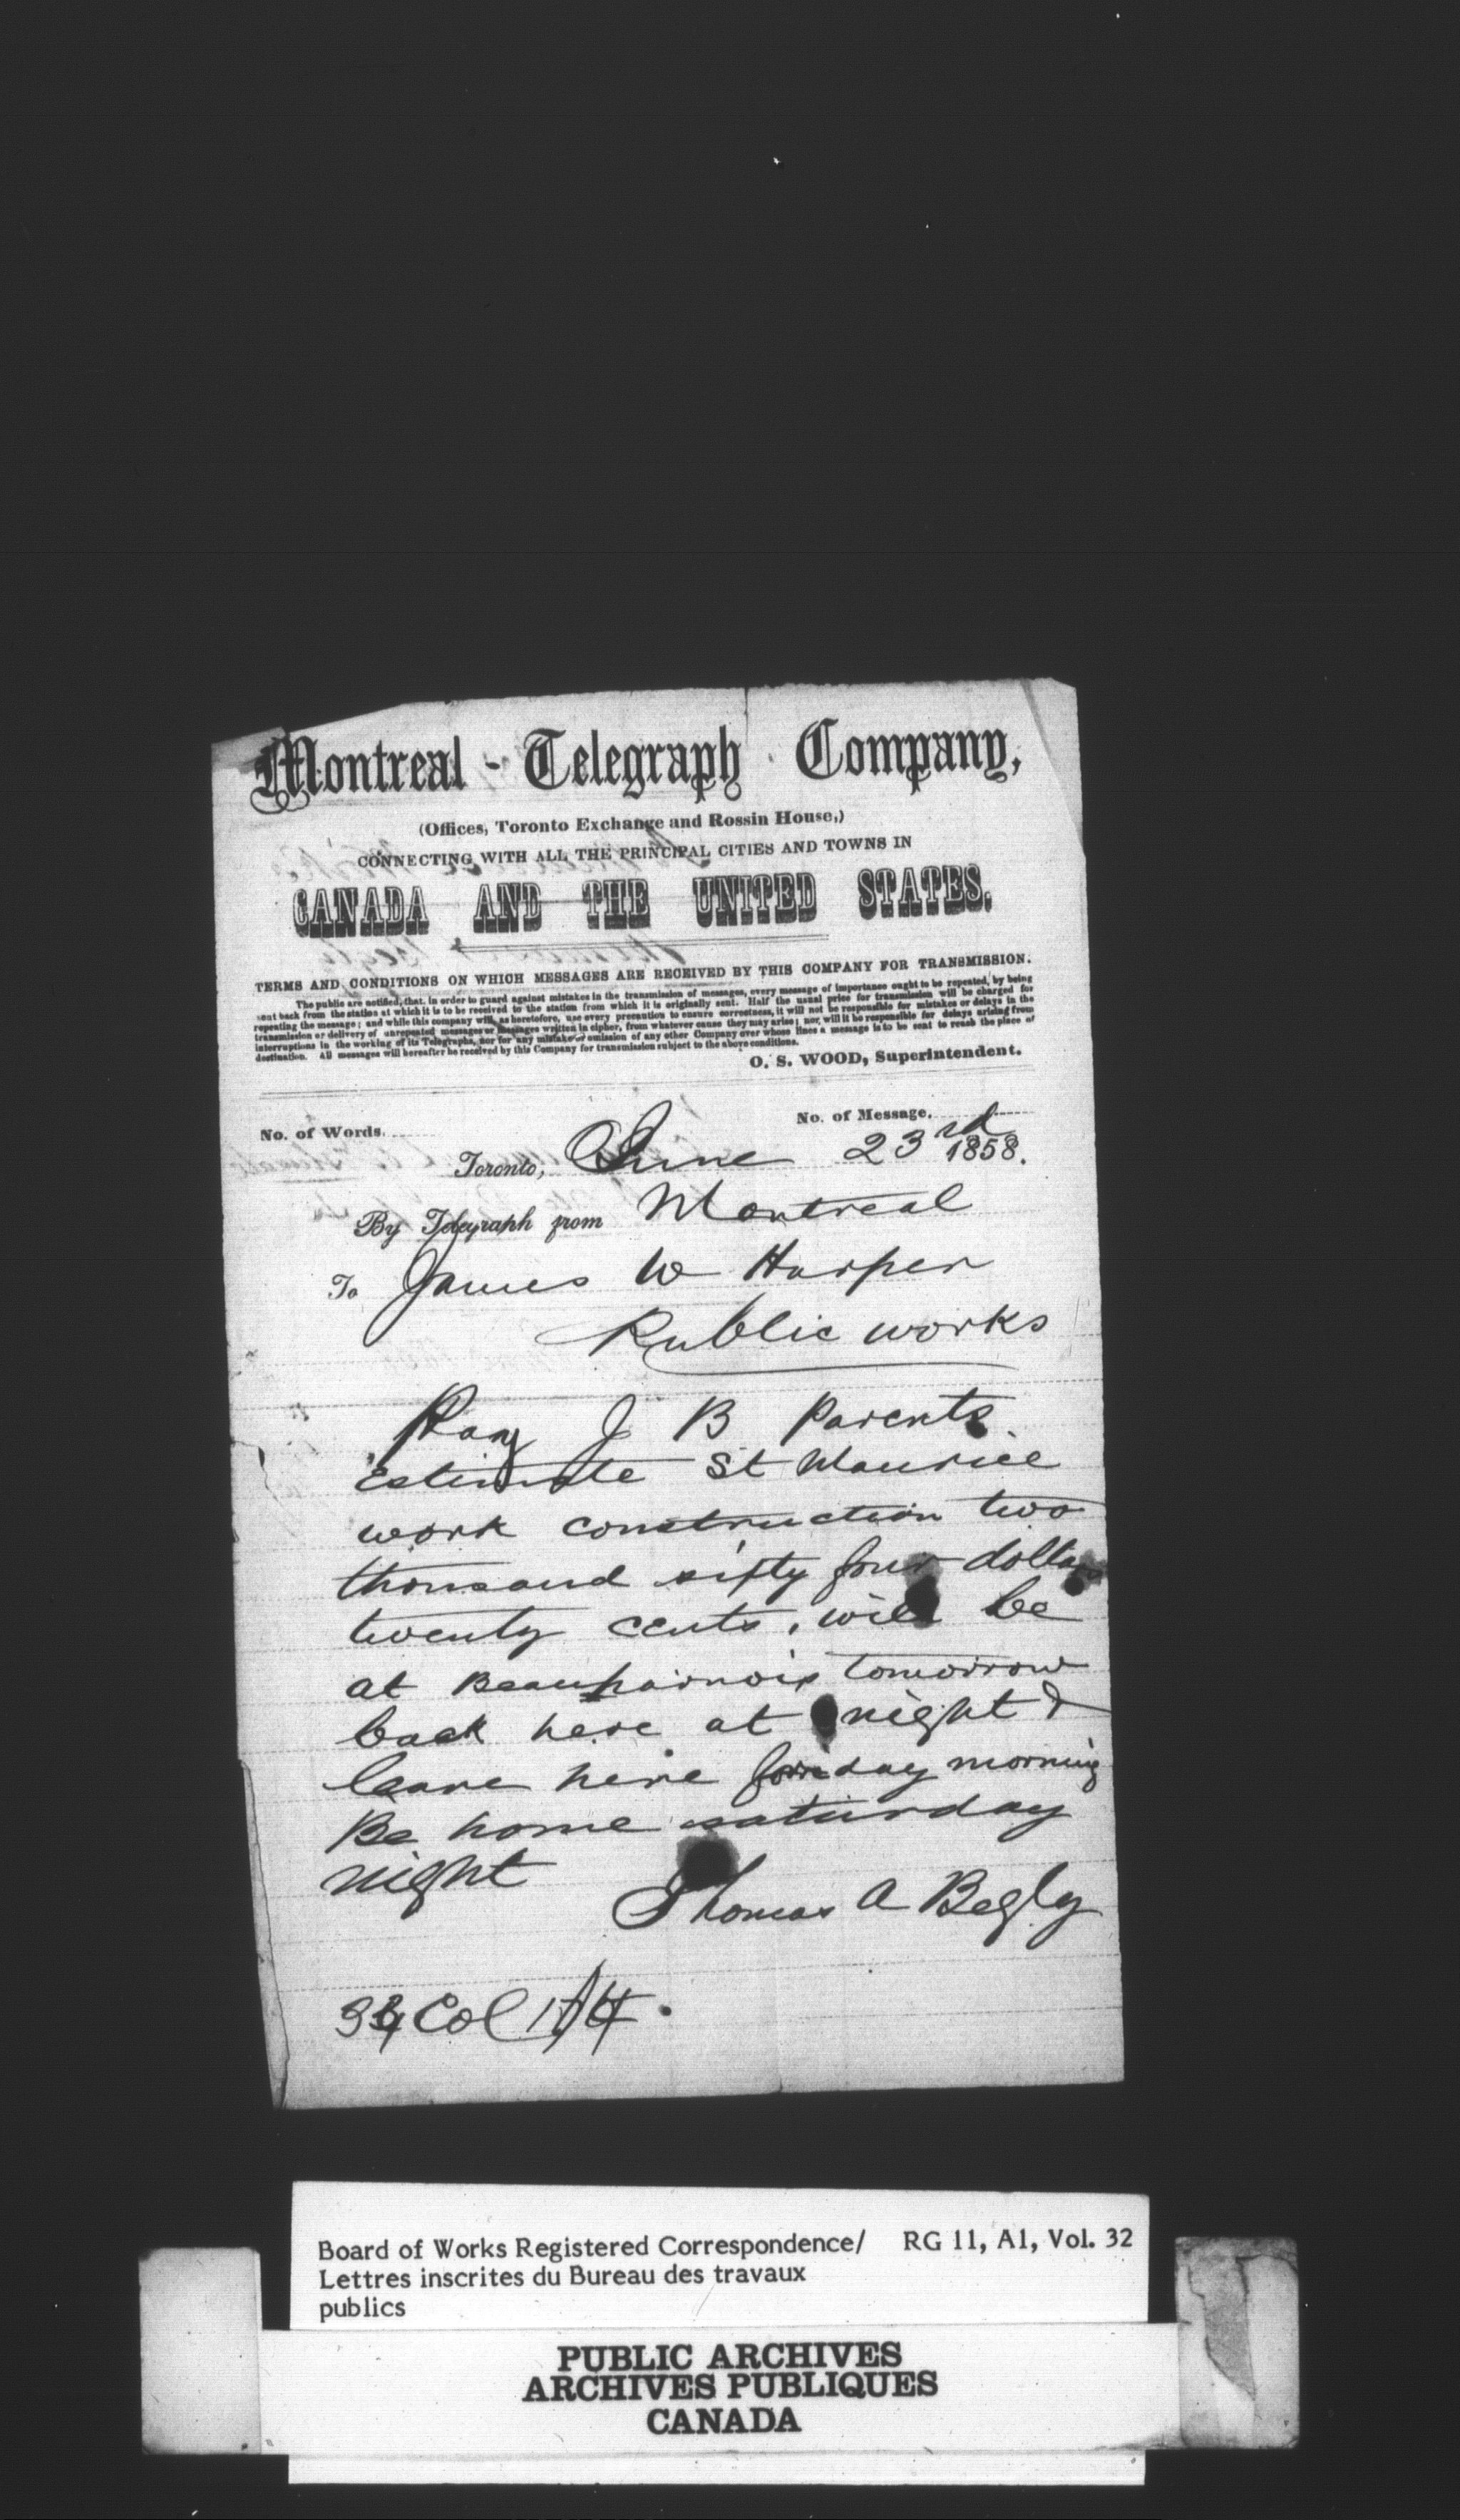 Montreal - Telegraph Company,
(Offices, Toronto Exchange and Rossin House,)
CONNECTING WITH ALL THE PRINCIPAL CITIES AND TOWNS IN
CANADA AND THE UNITED STATES.
TERMS AND CONDITIONS ON WHICH MESSAGES ARE RECEIVED BY THIS COMPANY FOR TRANSMISSION.
The public are notified, that, in order to guard against mistakes in the transmission of messages, every message of importance ought to be repeated, by being
sent back from the station at which it is to be received to the station from which it is originally sent. Half the usual price for transmission will be charged for
repeating the message; and while this company will, as heretofore, use every precaution to ensure correctness, it will not be responsible for mistakes or delays in the
transmission or delivery of unrepeated messages or messages written in cipher, from whatever cause they may arise; nor, will it be responsible for delays arising from
interruptions in the working of its Telegraphs, nor for any mistake or omission of any other Company over whose lines a message is to be sent to reach the place of
destination. All messages will hereafter be received by this Company for transmission subject to the above conditions.
O. S. WOOD, Superintendent.
No. of Message.
No. of Words.
Toronto, June 23rd 1858.
By Telegraph from Montreal
To James W Harper
Public works
Pay J B Parents
Estimate St Maurice
work construction two
thousand sixty four dollars
twenty cents, will be
at Beauharnois tomorrow
back here at night &
leave here day morning
Be home saturday
night
Thomas A Begly
Col
Board of Works Registered Correspondence/ RG 11, A1, Vol. 32
Lettres inscrites du Bureau des travaux
publics
PUBLIC ARCHIVES
ARCHIVES PUBLIQUES
CANADA